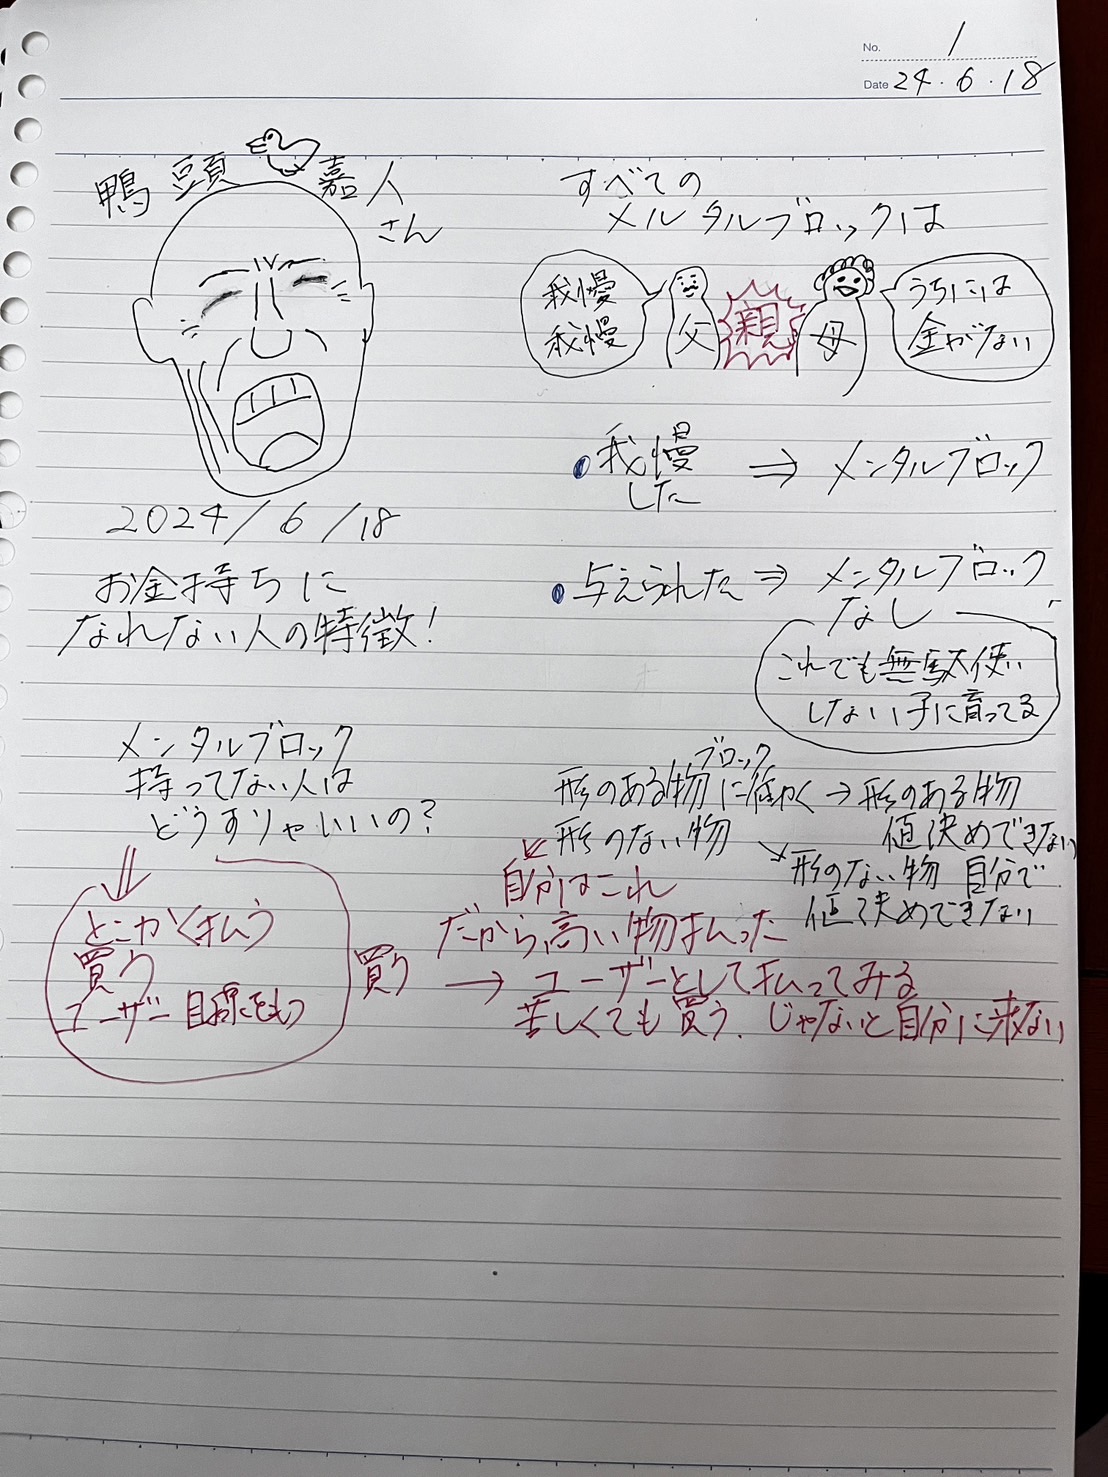 No. 1
Date 24.6.18
鴨頭 嘉人
さん
2024/6/18
お金持ちに
なれない人の特徴!
メンタルブロック
持ってない人は
どうすりゃいいの?
とにかく払う
買う
ユーザー目線をもつ
すべての
メルタルブロックは
我慢
我慢
父
親
母
うちには
金がない
我慢
した
⇒ メンタルブロック
与えられた ⇒ メンタルブロック
なし
これでも無駄使い
しない子に育ってる
ブロック
形のある物に働く→形のある物
値決めできない
形のない物
形のない物 自分で
値決めできない
自分はこれ
だから高い物払った
買う → ユーザーとして払ってみる
苦しくても買う. じゃないと自分に来ない